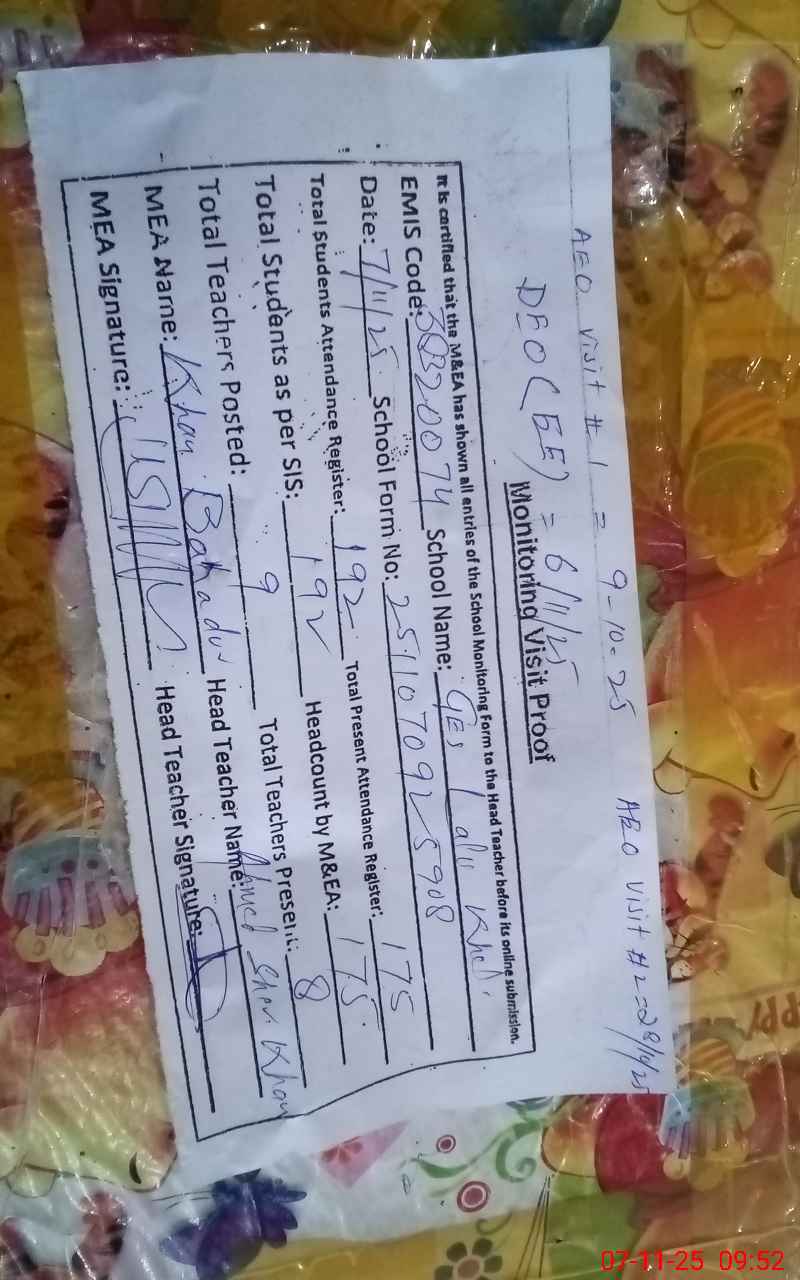 AEO visit # 1 = 9-10-25 AEO visit #2=28/10/25
DEO(EE) = 6/11/25
Monitoring Visit Proof
It is certified that the M&EA has shown all entries of the School Monitoring Form to the Head Teacher before its online submission.
EMIS Code: 38320074 School Name: GES
Date: 7/11/25 School Form No: 2511070925908
Total Students Attendance Register: 192 Total Present Attendance Register: 175
Total Students as per SIS: 192 Headcount by M&EA: 175
Total Teachers Posted: 9 Total Teachers Present: 8
MEA Name: Khan Bahadur Head Teacher Name: Ahmed Sher Khan
MEA Signature: Head Teacher Signature:
PPY
07-11-25 09:52